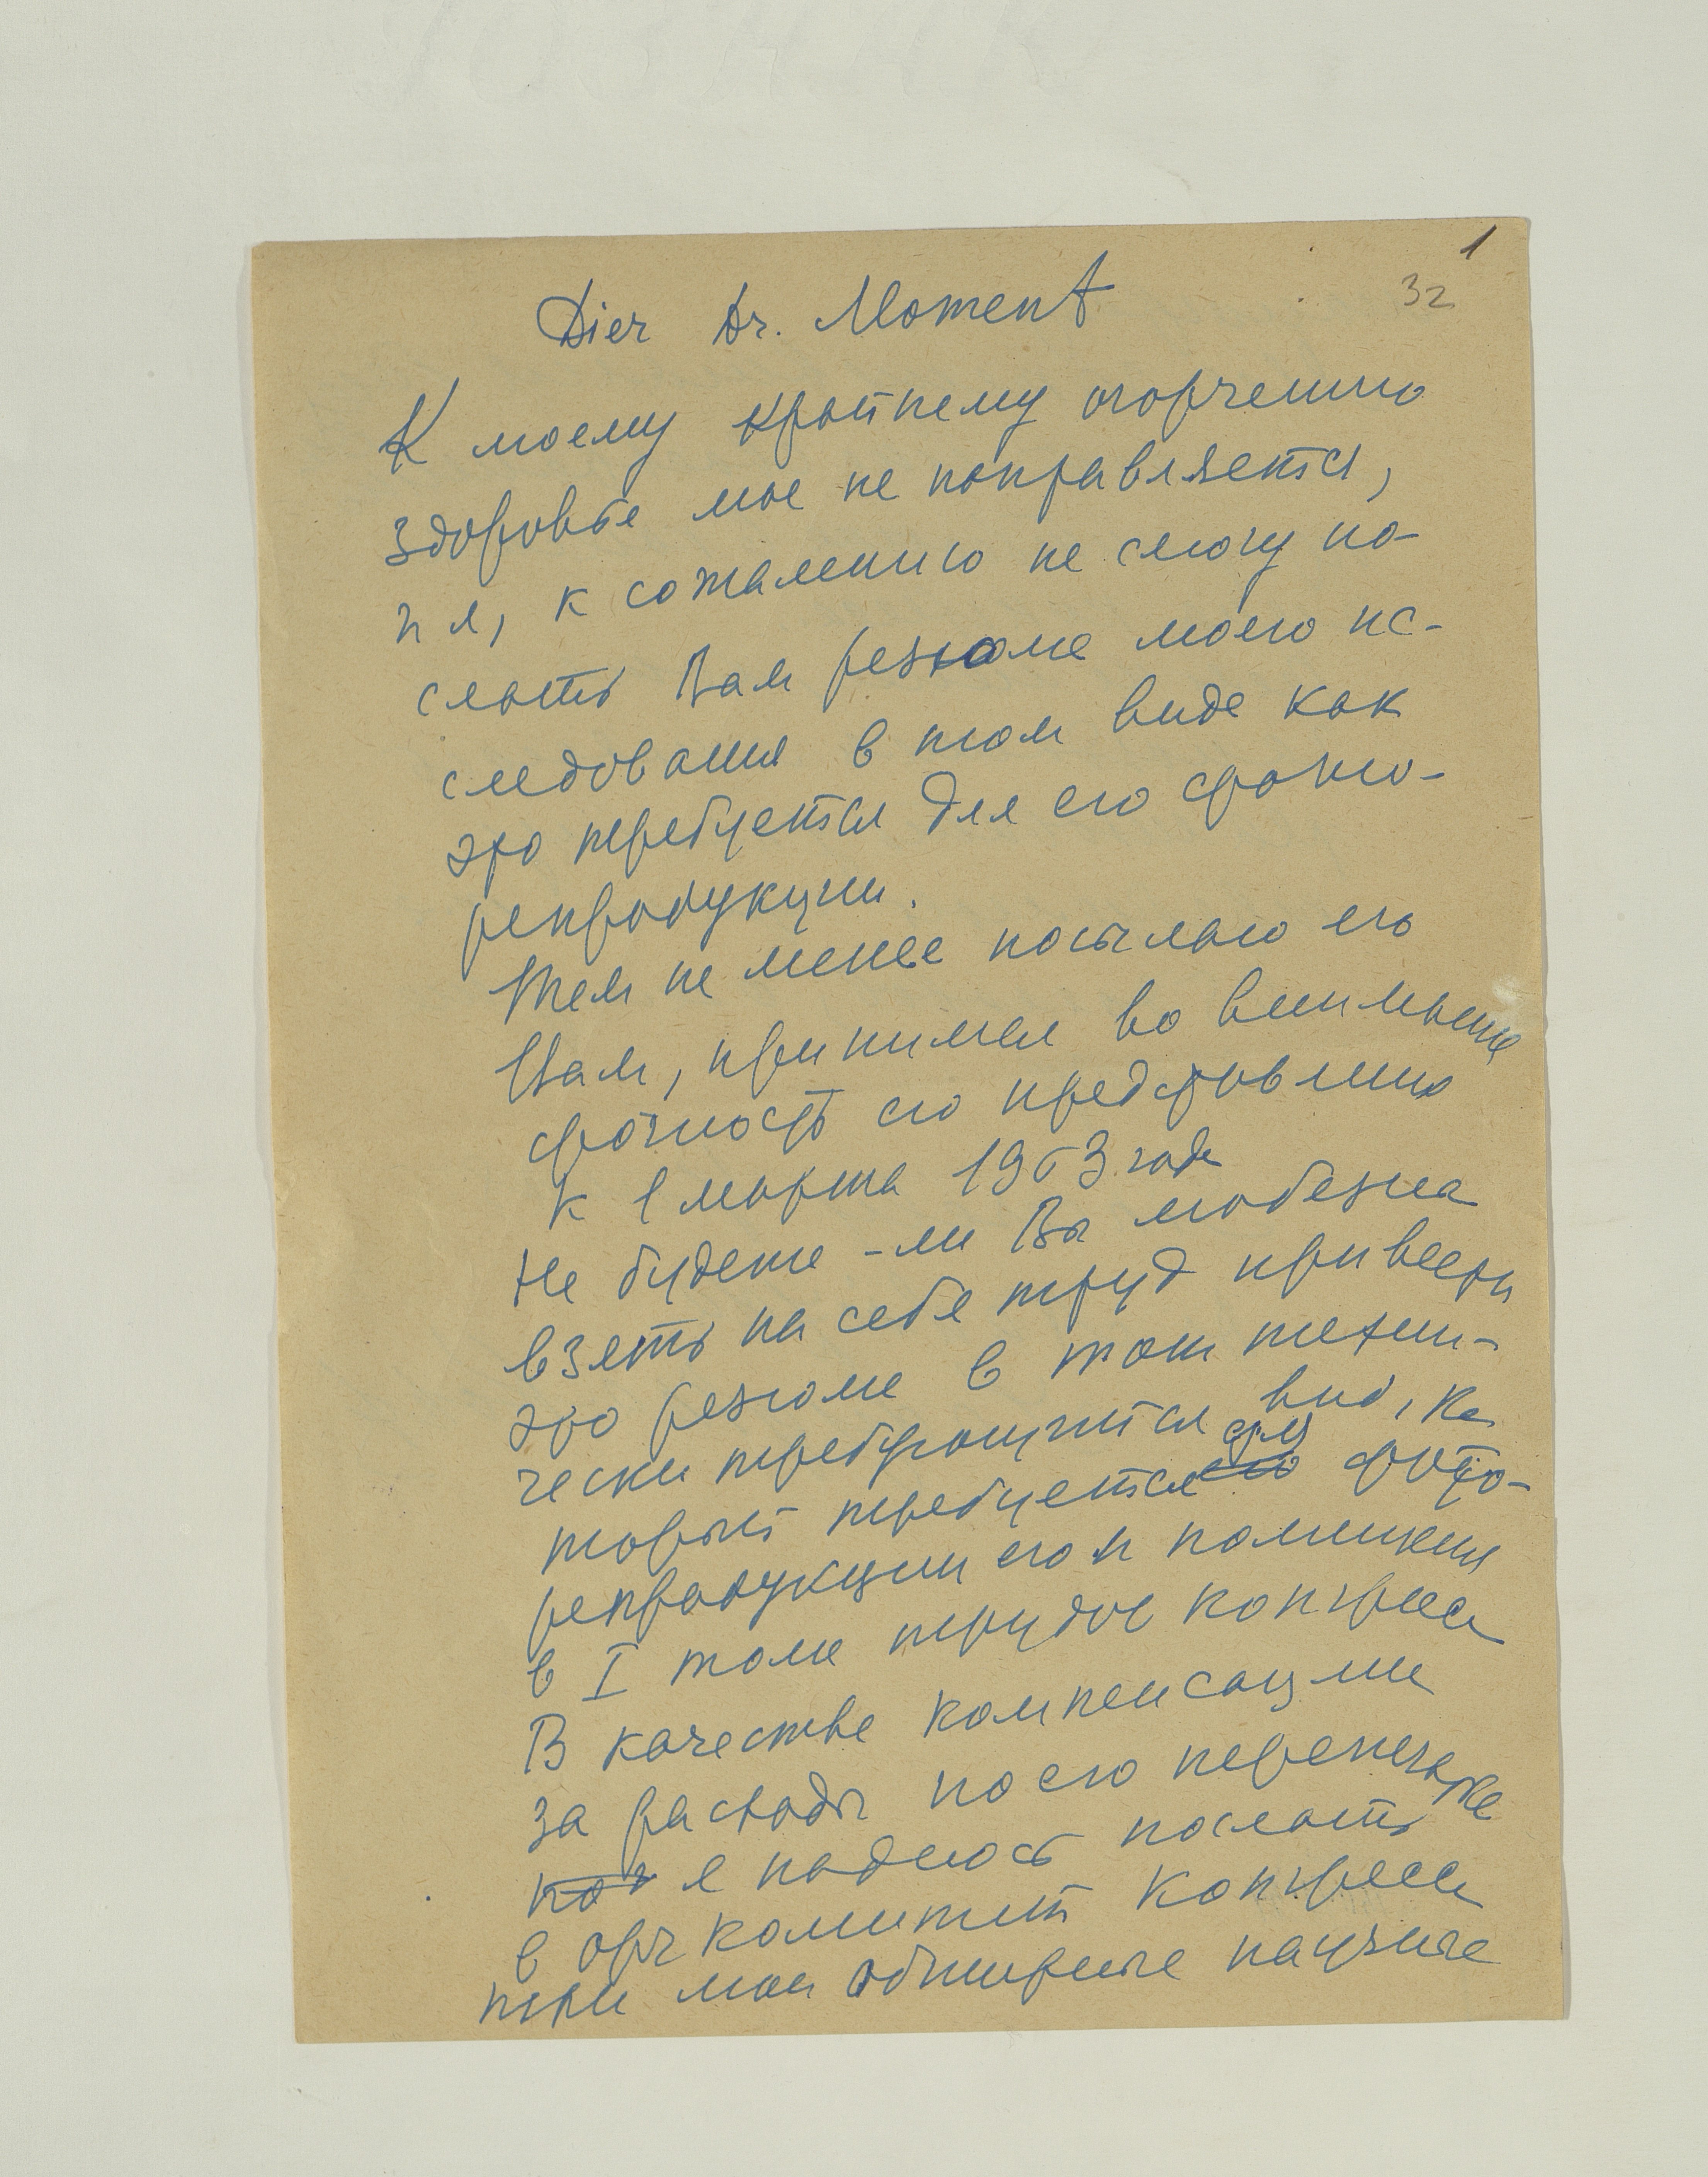 1
32
Dier Dr. Moment
К моему крайнему огорчению
здоровье мое не поправляется,
и я, к сожалению не смогу по-
слать Вам резюме моего ис-
следования в том виде как
это требуется для его фото-
репродукции.
Тем не менее посылаю его
Вам, принимая во внимание
срочность его представления
к 1 марта 1963 года
Не будете-ли Вы любезна
взять на себя труд привести
это резюме в тот техни-
чески требующийся вид, ко
торый требуется для фото-
репродукции его и помещения
в I томе трудов конгресса
В качестве компенсации
за расходы по его перепечатке
я надеюсь послать
в орг комитет Конгресса
три мои обширные научные